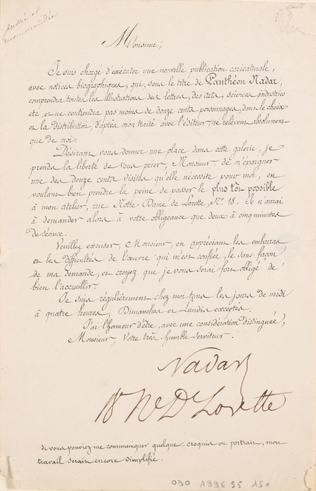 Monsieur,
Je suis chargé d'exécuter une nouvelle publication caricaturale,
avec notices biographiques, qui, sous le titre de Panthéon Nadar,
comprendra toutes les illustrations des lettres, des arts, sciences, industries
etc, et ne contiendra pas moins de douze cents personnages, dont le choix
et la distribution, d'après mon traité avec l'éditeur, ne relèvent absolument
que de moi.
Désirant vous donner une place dans cette galerie, je
prends la liberté de vous prier, Monsieur, de m'épargner
une des douze cents visites qu'elle nécessite pour moi, en
voulant bien prendre la peine de passer le plus tôt possible
à mon atelier, rue Notre-Dame de Lorette, N° 18. Je n'aurai
à demander alors à votre obligeance que deux à cinq minutes
de séance.
Veuillez excuser, Monsieur, en appréciant les embarras
et les difficultés de l'œuvre qui m'est confiée, le sans façon
de ma demande, et croyez que je vous serai fort obligé de
bien l'accueillir.
Je suis régulièrement chez moi tous les jours de midi
à quatre heures, Dimanches et Lundis exceptés.
J'ai l'honneur d'être, avec une considération distinguée,
Monsieur, Votre très humble serviteur.
Nadar
18 Ne De Lorette
Si vous pouviez me communiquer quelque croquis ou portrait, mon
travail serait encore simplifié.